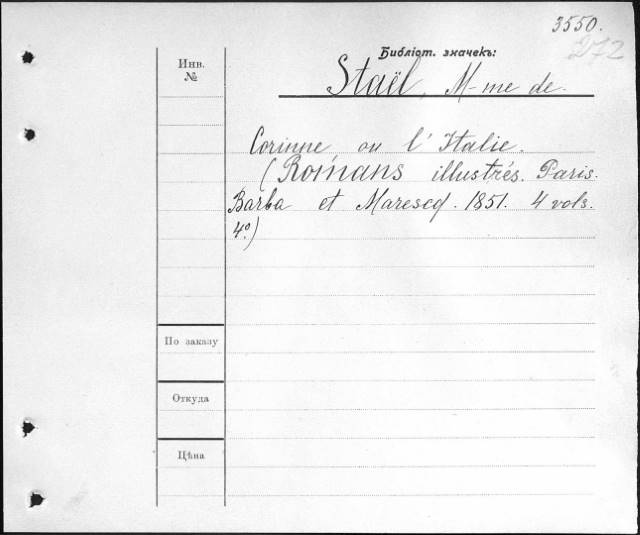 3550.
272
Библіот. значекъ:
Инв.
№
Staël, M-me de.
Corinne ou l'Italie.
(Romans illustrés. Paris.
Barba et Marescq. 1851. 4 vols.
4º)
По заказу
Откуда
Цѣна